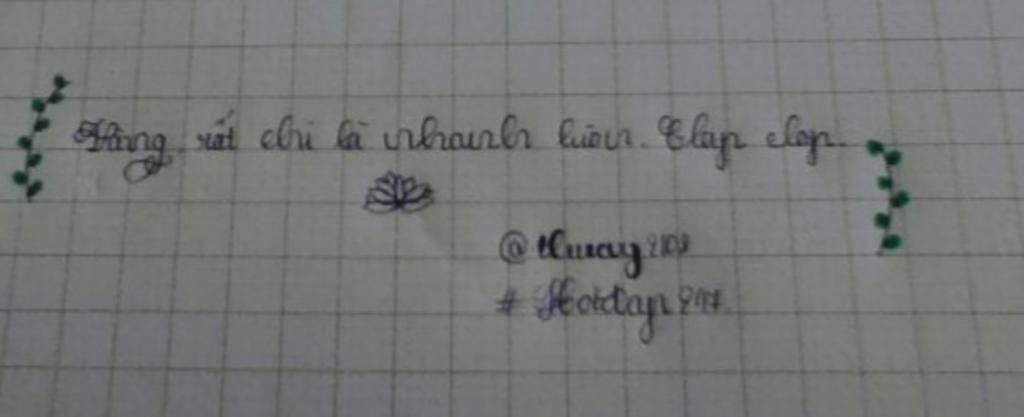 Vâng, rất chi là nhanh luôn. Clap clap.
@thuray2103
# Hoidap247.